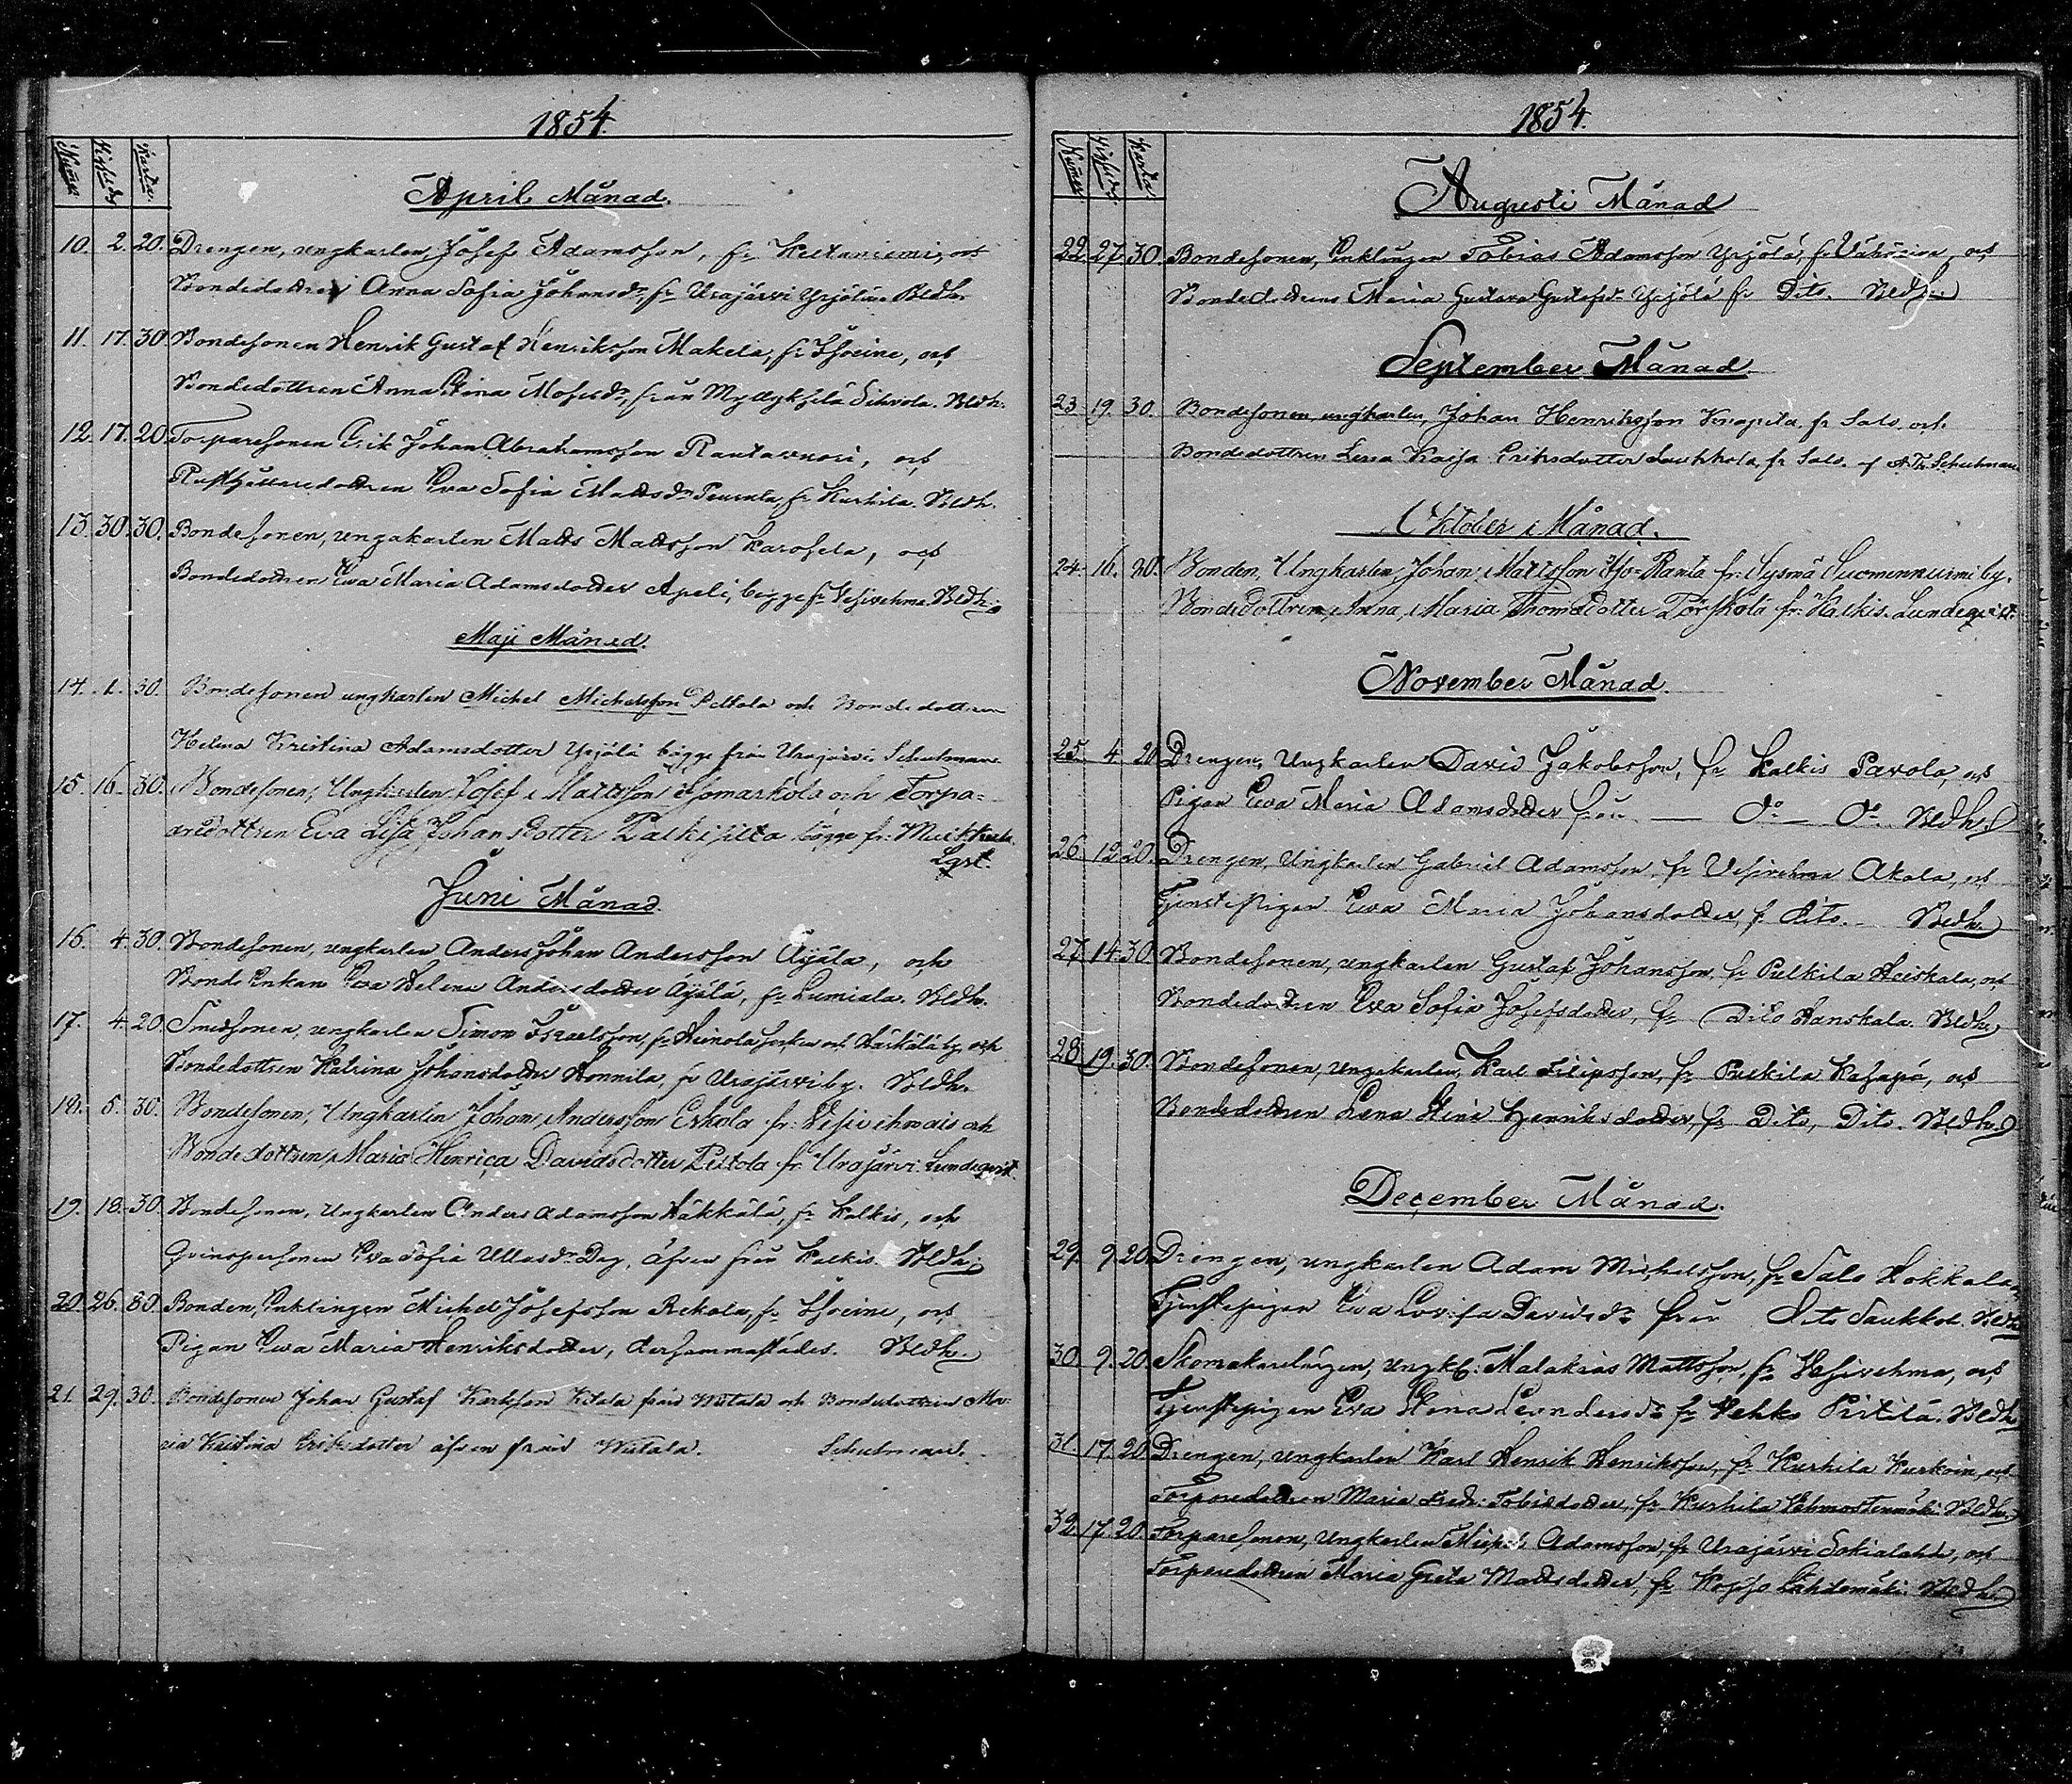 1854.
Numer. Vigsel dag Karta.
April Månad.
10. 2. 20. Drengen, ungkarlen Josef Adamsson, fr. och
Bondedottren Anna Sofia Johansdr, fr Urajärvi Yrjölä Bldh.
11. 17. 30 Bondesonen Henrik Gustaf Henriksson Makela, fr och
Bondedottren Anna Stina Mosesdr, från Myllykselä
12. 17. 20 Torparesonen Erik Johan Abrahamsson Rautavuori, och
Eva Sofia Mattsdr fr Kurhila. Bldh.
13. 30. 30. Bondesonen, ungakarlen Matts Mattsson och
Bondedottren Ewa Maria Adamsdotter Apeli, begge fr Vesivehma Bldh.
Maji Månad.
14. 1. 30. Bondesonen ungkarlen Michel Michelsson Peltola och Bondedottren
Helena Kristina Adamsdotter Yrjölä bägge från Urajärvi Schulman
15. 16. 30. Bondesonen, Ungkarlen Josef Mattsson och Torpa=
redottren Eva Lisa Johansdotter bägge fr.
Lqst.
Juni Månad.
16. 4. 30. Bondesonen, ungkarlen Anders Johan Andersson Äyälä, och
Bonde Enkan Ewa Helena Andersdotter Äyälä, fr Bldh.
17. 4. 20 Smedsonen, ungkarlen Simon Israelsson, fr Heinola och
Bondedottren Katrina Johansdotter Honnila, fr Urajärvi by. Bldh.
18. 5. 30. Bondesonen, Ungkarlen Johan Andersson Erkola fr. och
Bondedottren Maria Henrica Davidsdotter Peltola fr. Urajärvi. Lundeqvist.
19. 18. 30. Bondesonen, ungkarlen Anders Adamsson Häkkälä, fr Kalkis, och
Qvinspersonen Eva Sofia Dag, äfven från Kalkis. Bldh.
20. 26. 80. Bonden, Enklingen Michel Josefsson Rekola, fr och
Pigan Ewa Maria Henriksdotter, dersammastädes. Bldh.
21. 29. 30. Bondesonen Johan Gustaf Karlsson från och Bondedottren Ma-
ria Kristina Eriksdotter äfven från Schulman.
1854.
Numer. Vigsel dag Karta
Augusti Månad
22. 27. 30. Bondesonen, Enklingen Tobias Adamsson Yrjölä, fr och
Maria Gustava Gustafsdr Yrjölä fr Dito. Bldh.
September Månad
23. 19. 30. Bondesonen, ungkarlen, Johan Henriksson fr Salo och
Bondedottren Lena Kaisa Eriksdotter fr Salo. af Schulman
Oktober Månad.
24. 16. 20. Bonden, Ungkarlen, Johan Mattsson Iso=Ranta fr. Sysmä Suomennurmi by.
Bondedottren, Anna Maria Thomsdotter fr. Kalkis. Lundeqvist.
November Månad.
25. 4. 20 Drengen, Ungkarlen David Jakobsson, fr Kalkis Pavola, och
Pigan Ewa Maria Adamsdotter från — Do — Do Bldh.
26. 12. 20. Drengen, Ungkarlen Gabriel Adamsson, fr Vesivehma Akala, och
Tjenstepigan Ewa Maria Johansdotter, fr dito. Bldh.
27. 14. 30. Bondesonen, ungkarlen Gustaf Johansson, fr Pulkila och
Bondedottren Eva Sofia Josefsdotter, fr Dito Bldh.
28. 19. 30. Bondesonen, ungkarlen, Karl Filipsson, fr Pulkila och
Bondedottren Lena Stina Henriksdotter, fr Dito, Dito. Bldh.
December Månad.
29. 9. 20 Drengen, ungkarlen Adam Michelsson, fr Salo
Tjenstepigan Eva Lovisa Davidsdr från dito Bldh.
30. 9. 20 Skomakare ungk: Malakias Mattsson, fr Vesivehma, och
Tjenstepigan Eva Stina fr Bldh.
31. 17. 20 Drengen, ungkarlen Karl Henrik Henriksson, fr Kurhila och
Torparedottren Maria Fredr. Tobiasdotter, fr Kurhila Bldh.
32. 17. 20. Torparesonen, ungkarlen Michel Adamsson, fr Urajärvi och
Torparedottren Maria Greta Mattsdotter, fr Bldh.